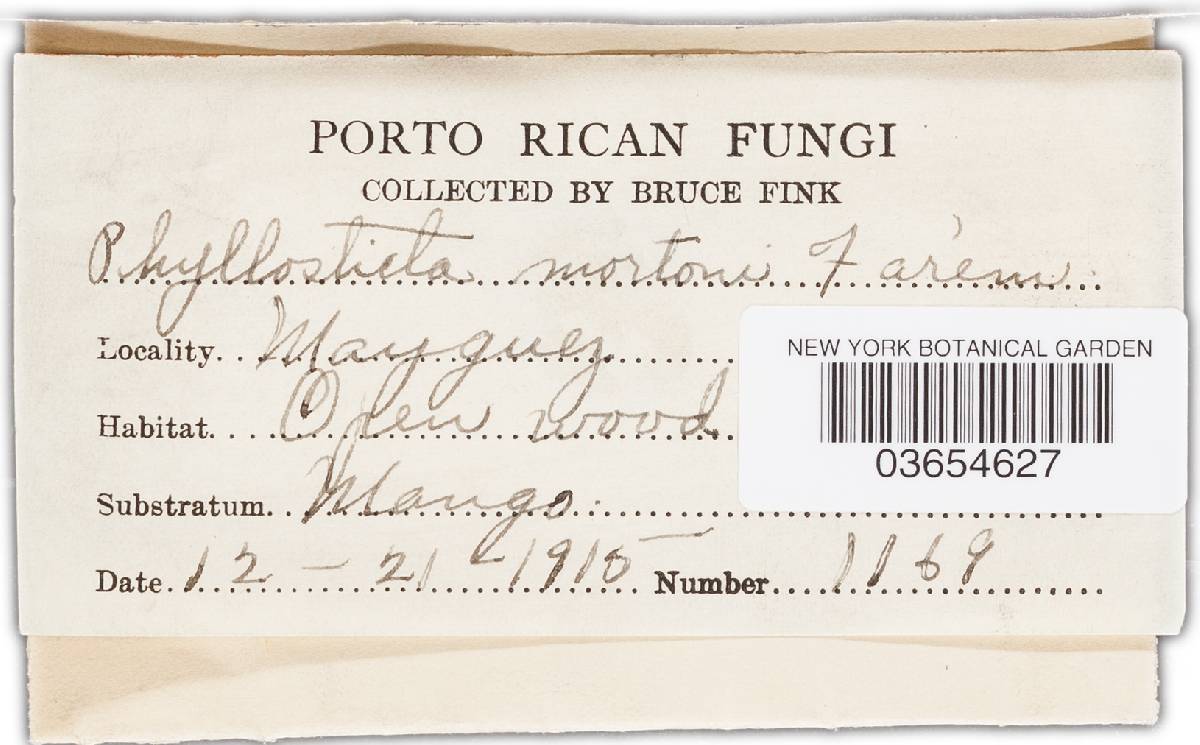 PORTO RICAN FUNGI
COLLECTED BY BRUCE FINK
Phyllosticta mortoni Fairem
Locality Mayguez
Habitat Open wood
Substratum Mango
Date 12-21-1915 Number 1169
NEW YORK BOTANICAL GARDEN
03654627